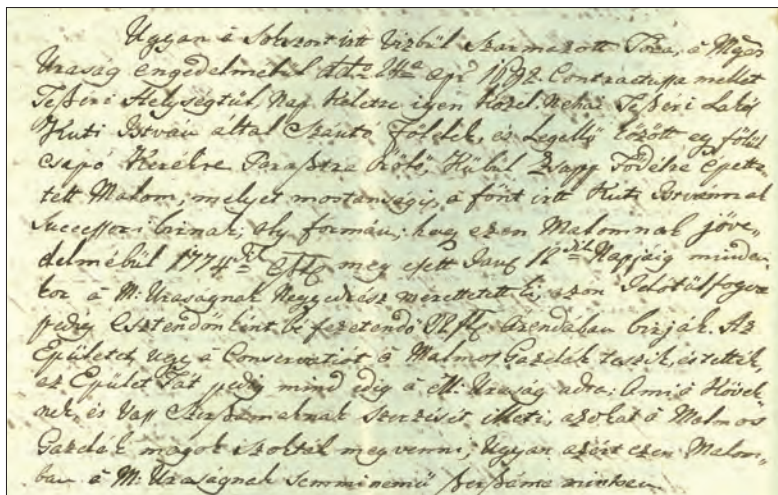 Ugyan a Sokszor irtt Vizbül Származott Tóra, a Mgos
Uraság engedelmébül dto 24ta apr 1692 Contractussa mellett
Teßéri Helységtül, Nap Keletre igen közel Nehai Teßéri Lakos
Kuti István által Szántó Földek, és Legellő között egy fölül
csapó Kerekre Paraßtra Örlő, Kübül Zsupp Födélre épétte
tett Malom, melyet mostanságis, a fönt irtt Kuti Istvánnak
Successori birnak; oly formán; hogy ezen Malomnak jöve„
delmébül 1774 meg esett 12 Napjáig minden
kor a M: Uraságnak Negyedrész merettetett ki, azon Idötülfogva
pedig Esztendönként be fizetendö Árendában birják. Az
Épületek ügye a Conservatiot a Malmos Gazdák teszik, és tették,
az Épület Fát pedig mind edig a M: Uraság adta: Ami a Kövek
nek, és Vas Szerßámaknak szerzésit illeti, azokat a Malmos
Gazdák magok szokták megvenni; Ugyan azért ezen Malom„
ban a M: Uraságnak semminemü ßerßáma nintsen